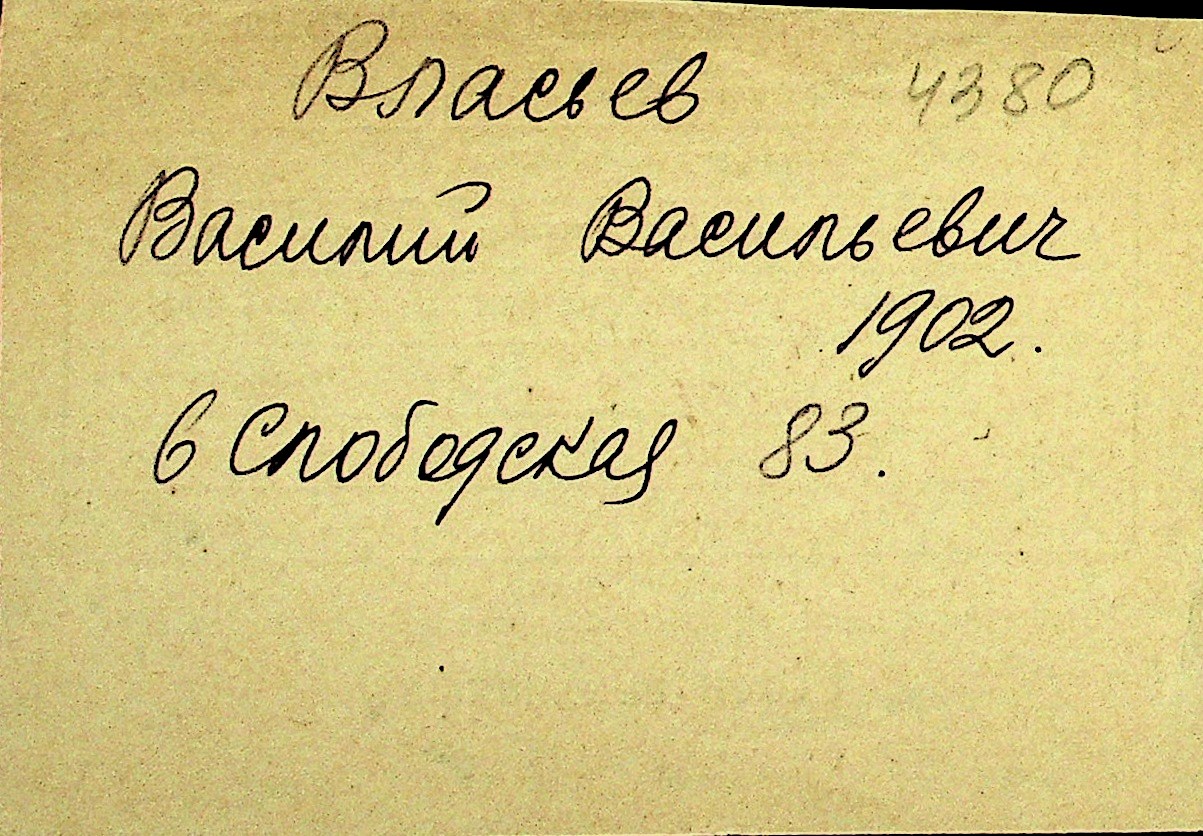 Власьев 4380
Василий Васильевич
1902.
в Слободская 83.